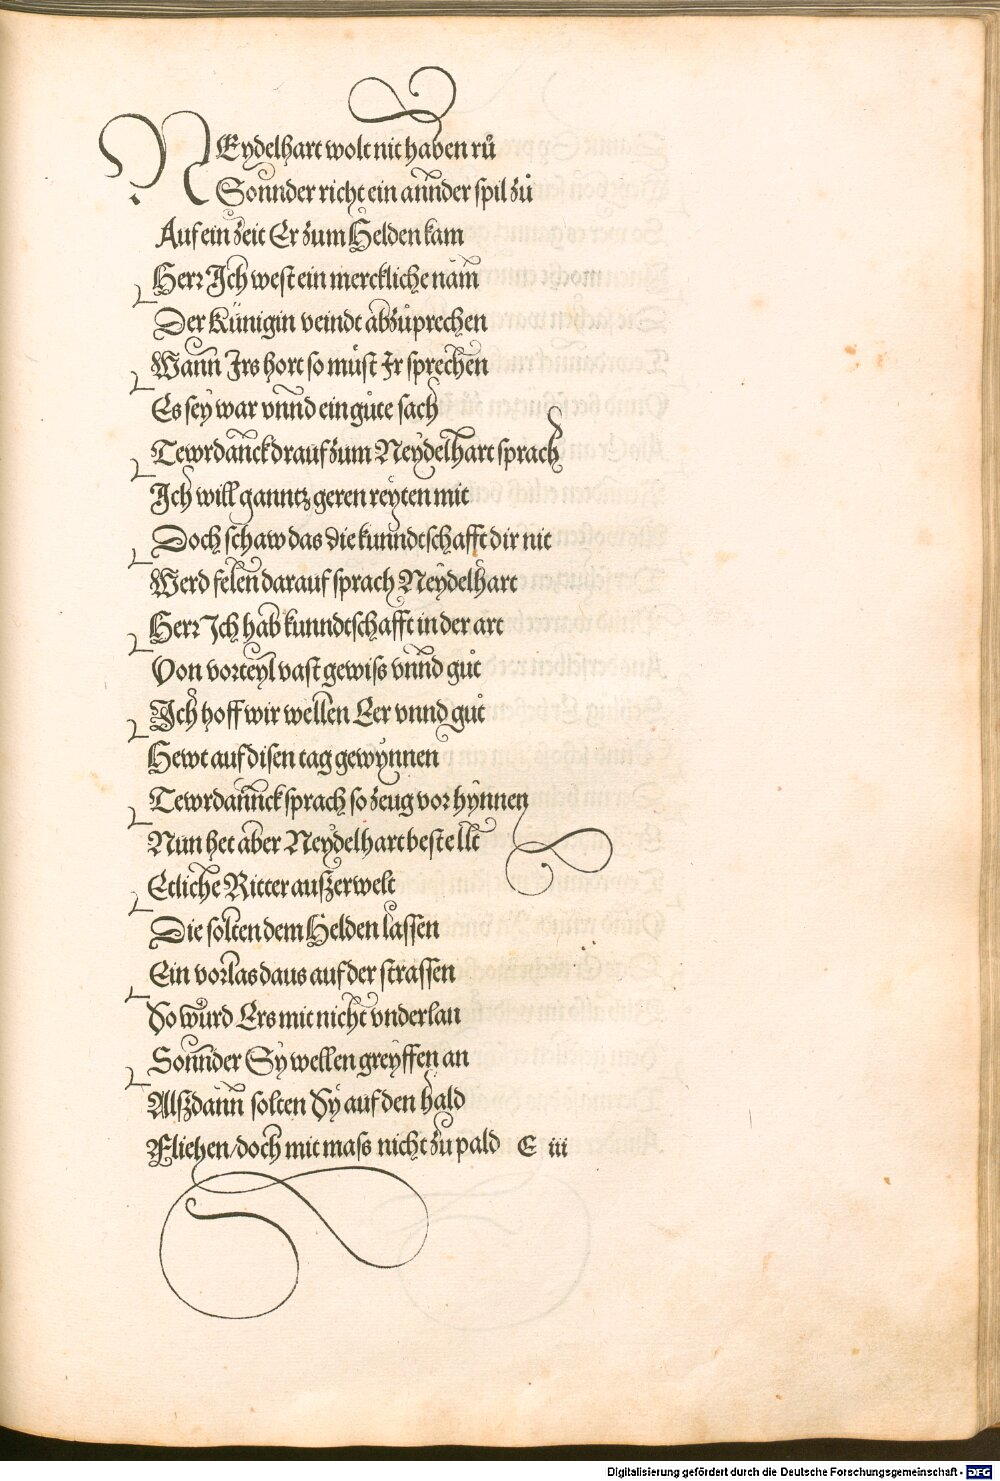 NEydelhart wolt nit haben rů
Sonnder richt ein annder spil zů
Auf ein zeit Er zum Helden kam
Herr Ich west ein merckliche nam
Der Künigin veindt abzůprechen
Wann Irs hort so můst Ir sprechen
Es sey war vnnd ein gůte sach
Tewrdannck drauf zum Neydelhart sprach
Ich will ganntz geren reyten mit
Doch schaw das die kunndtschafft dir nit
Werd felen darauf sprach Neydelhart
Herr Ich hab kunndtschafft in der art
Von vorteyl vast gewiss vnnd gůt
Ich hoff wir wellen Eer vnnd gůt
Hewt auf disen tag gewynnen
Tewrdannck sprach so zeug vor hynnen
Nun het aber Neydelhart bestellt
Etliche Ritter auszerwelt
Die solten dem Helden lassen
Ein vorlas daus auf der strassen
So wurd Ers mit nicht vnderlan
Sonnder Sy wellen greyffen an
Alszdann solten Sy auf den hald
Fliehen/doch mit mass nicht zu pald E iii
Digitalisierung gefördert durch die Deutsche Forschungsgemeinschaft - DFG